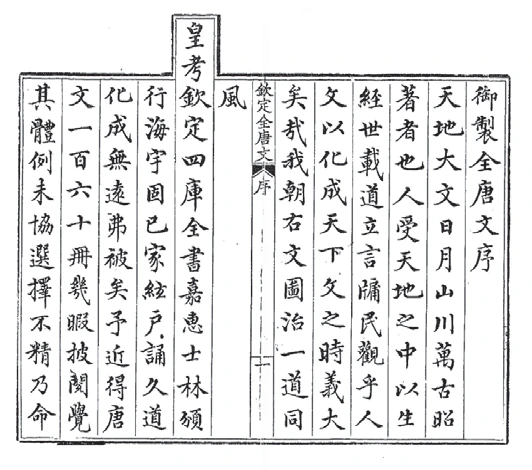 御製全唐文序
天地大文日月山川萬古昭
著者也人受天地之中以生
經世載道立言牖民觀乎人
文以化成天下文之時義大
矣哉我朝右文圖治一道同
欽定全唐文 序 一
風
皇考欽定四庫全書嘉惠士林頒
行海宇固已家絃戶誦久道
化成無遠弗被矣予近得唐
文一百六十冊幾暇披閱覺
其體例未協選擇不精乃命